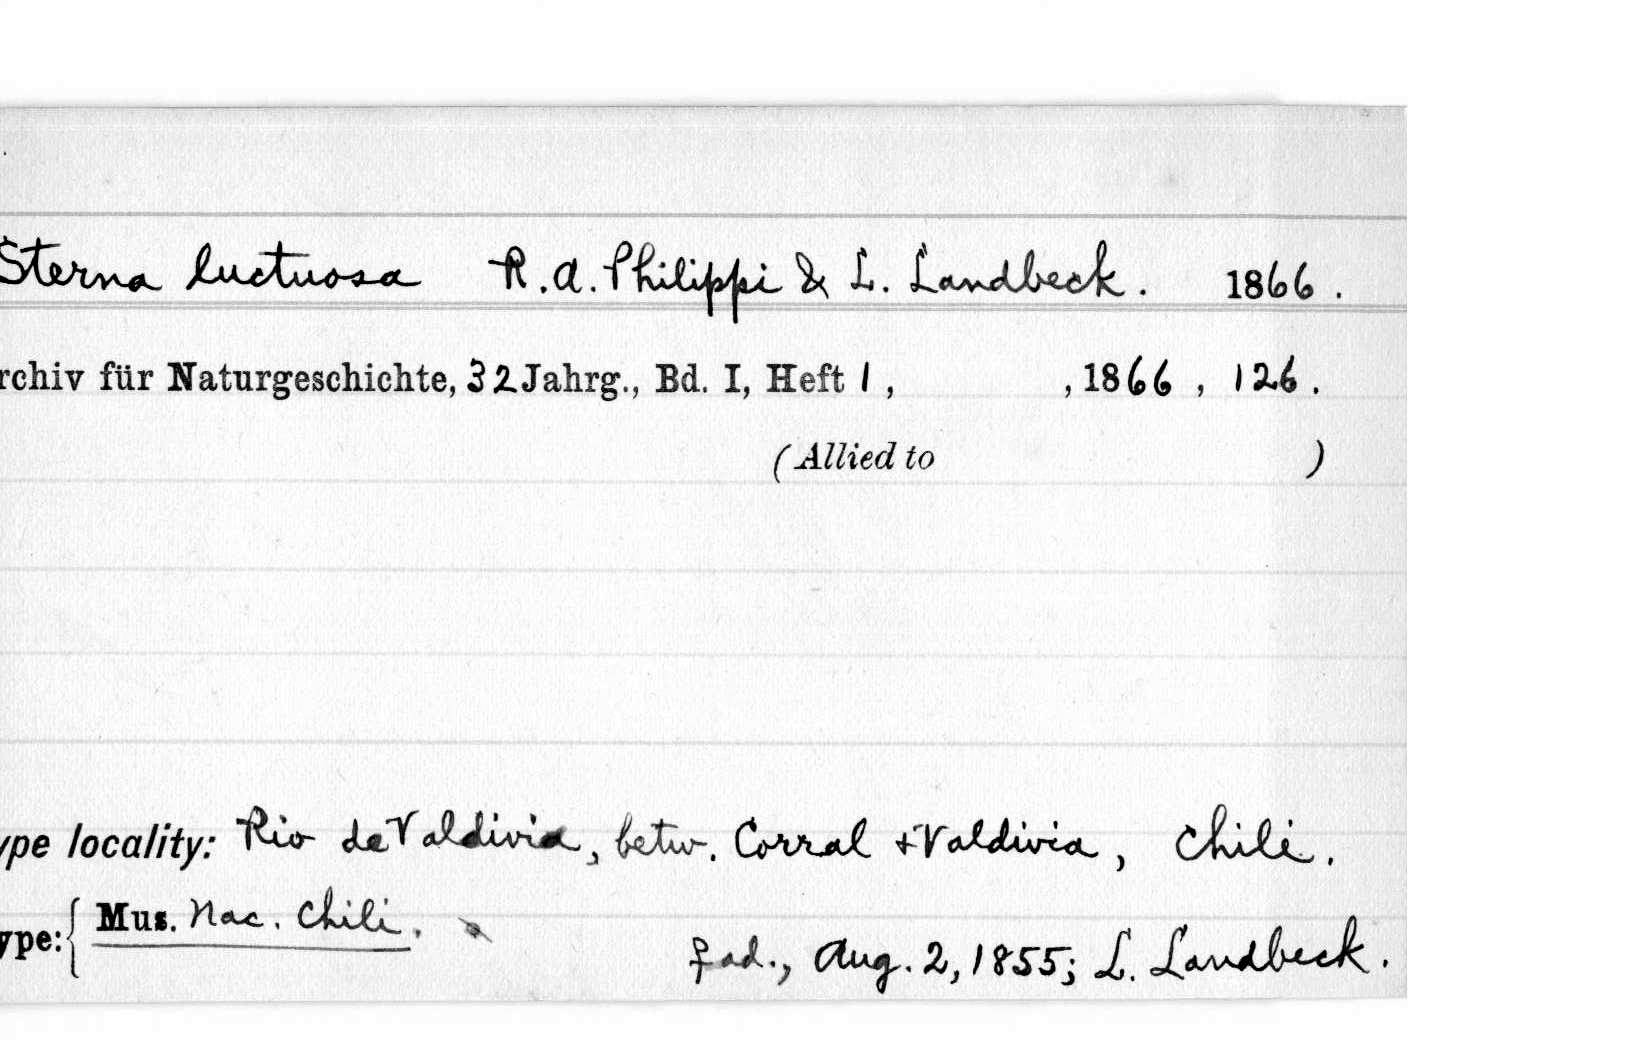 Sterna luctuosa R. A. Philippi & L. Landbeck. 1866.
rchiv für Naturgeschichte, 32 Jahrg., Bd. I, Heft 1, , 1866, 126.
(Allied to )
ype locality: Rio de Valdivia, betw. Corral + Valdivia, Chili.
ype: { Mus. Nac. Chili.
♀ ad., Aug. 2, 1855; L. Landbeck.